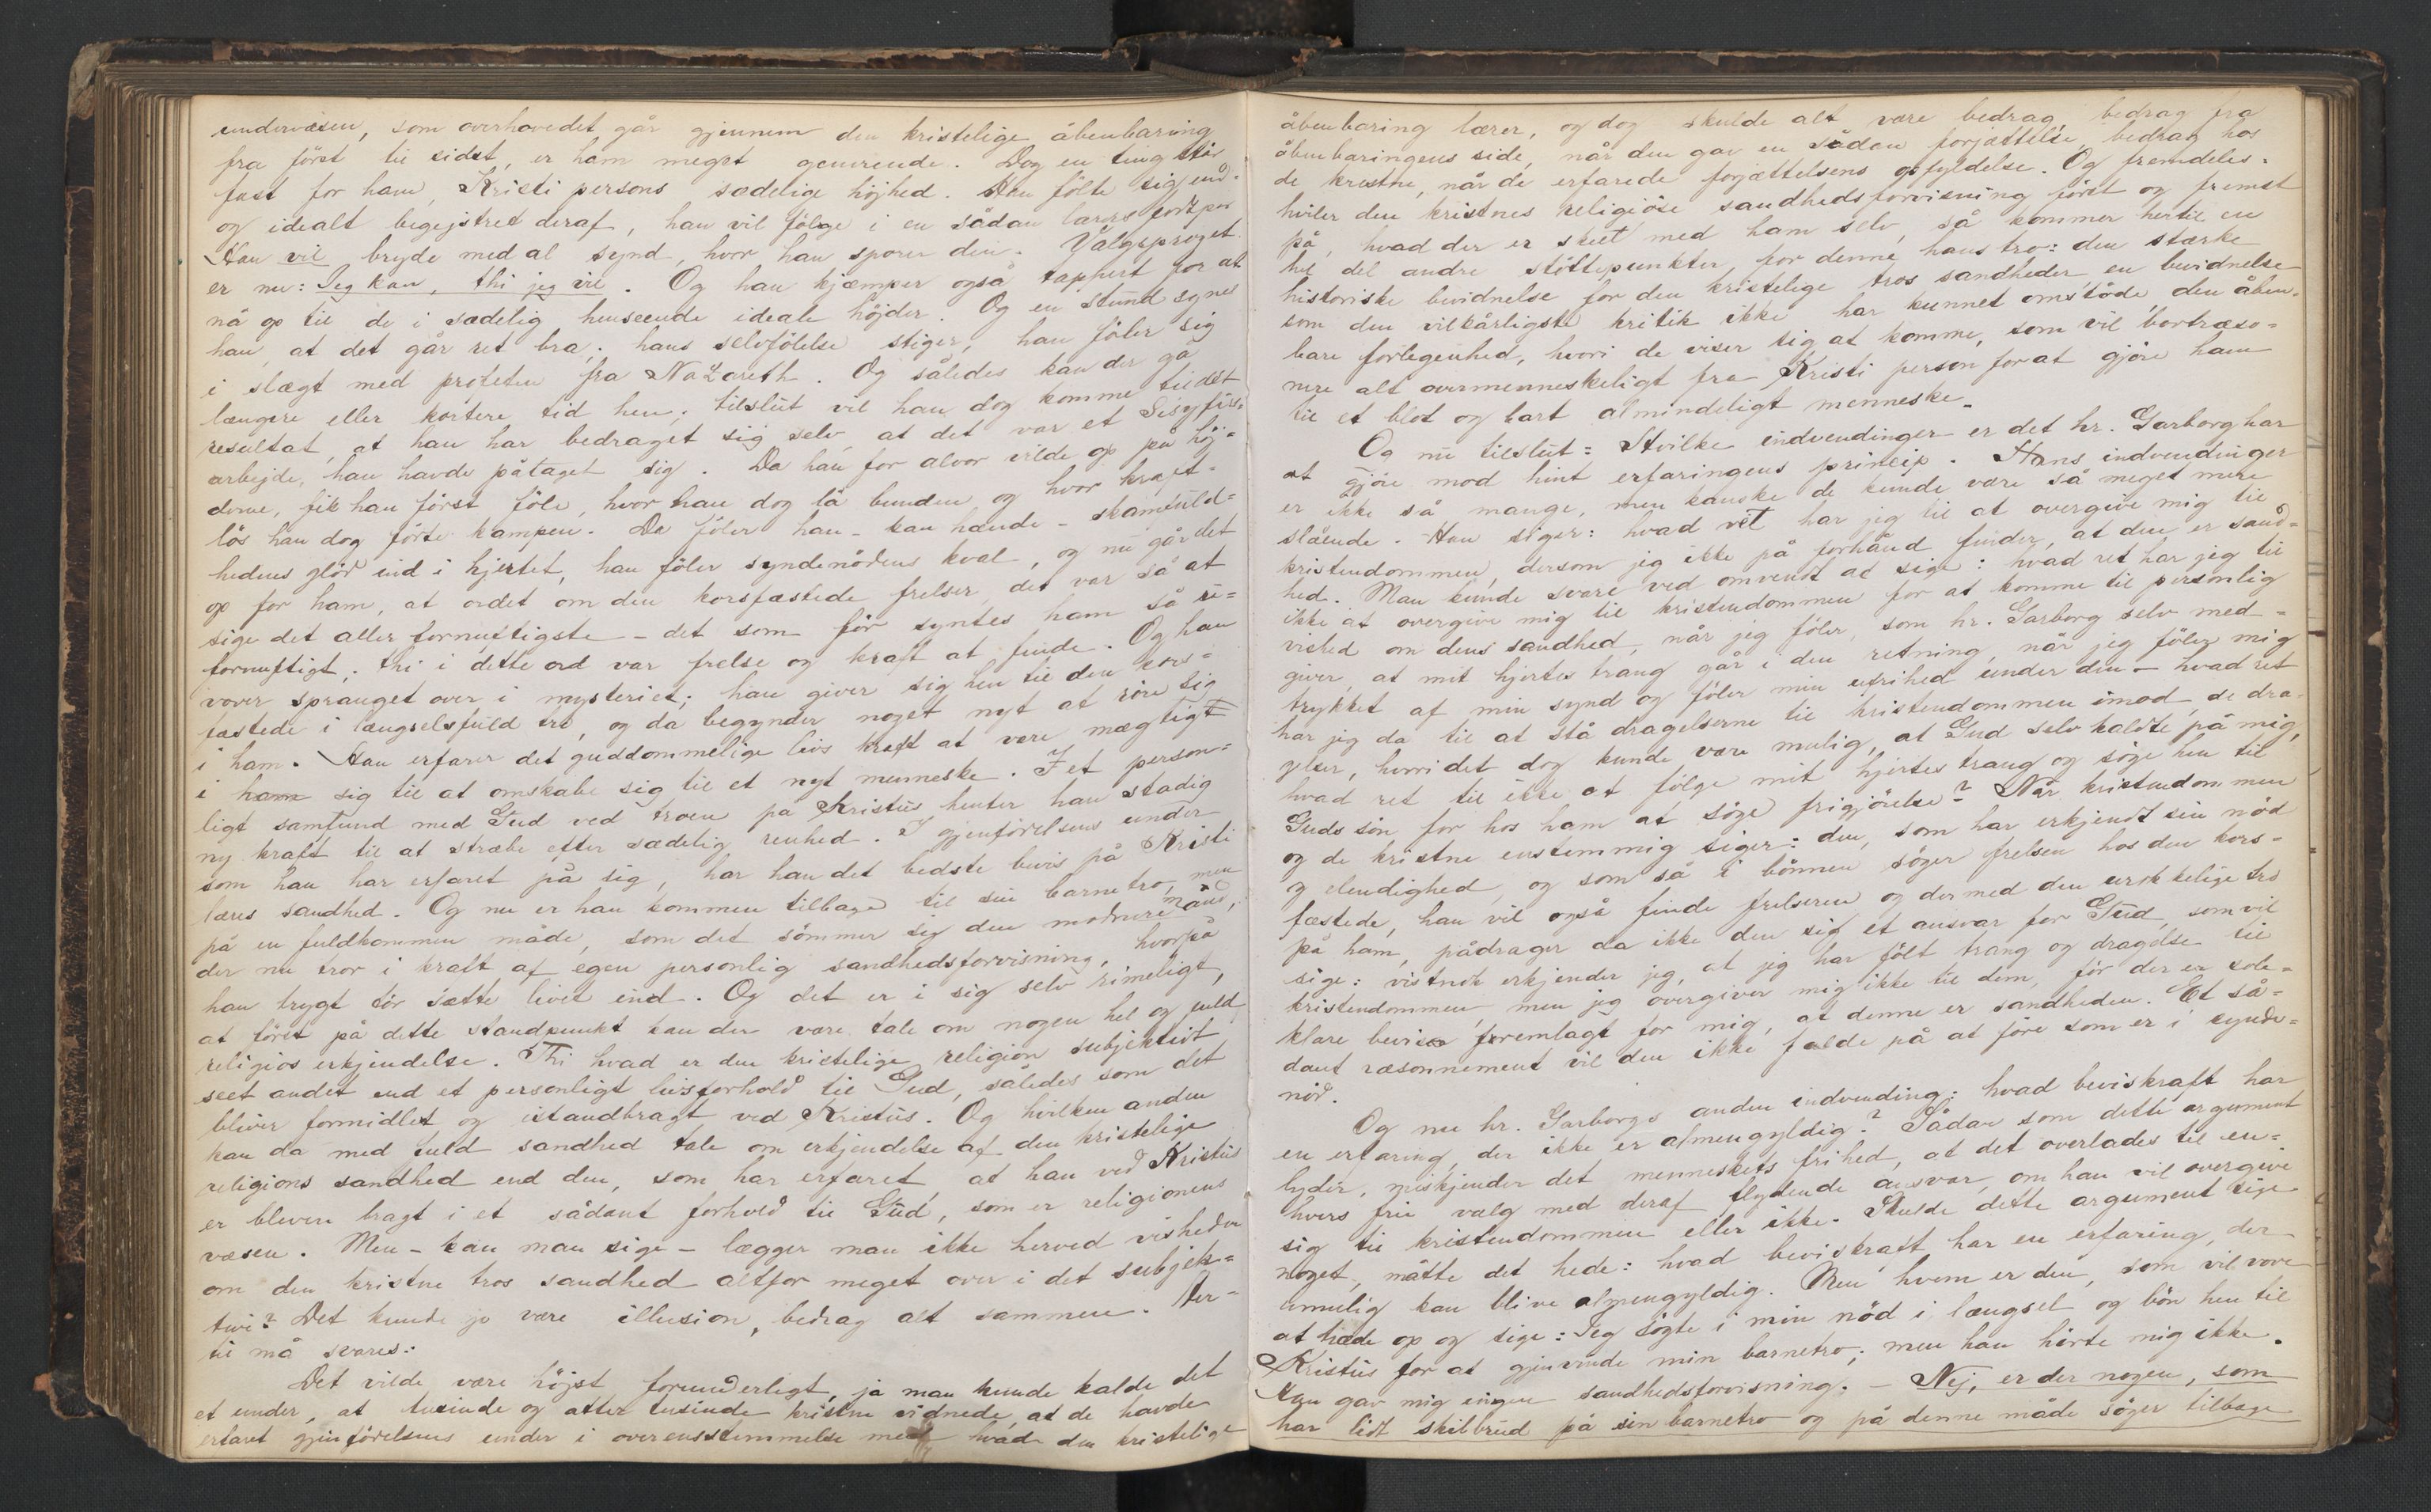 undervæsen, som overhovedet går gjennem den kristelige åbenbaring
fra först til sidst, er ham meget generende. Dog en ting står
fast for ham, Kristi persons sædelige höjhed. Han fölte sig jend-
og idealt begejstret deraf, han vil fölge i en sådan lærers fodspor
Han vil bryde med al synd, hvor han sporer den. Valgsproget
er nu: Jeg kan, thi jeg vil. Og han kjæmper også tappert for at
nå op til de i sædelig henseende ideale höjder. Og en stund synes
han, at det går ret bra; hans selvfölelse stiger, han föler sig
i slægt med profeten fra Nazareth. Og således kan der gå
længere eller kortere tid hen; tilslut vil han dog komme til det
resultat, at han har bedraget sig selv at det var et Sisyfus-
arbejde, han havde påtaget sig. Da han for alvor vilde op på höj-
derne, fik han först föle, hvor han dog lå bunden og hvor kraft-
lös han dog förte kampen. Da föler han - kan hænde - skamfuld-
hedens glöd ind i hjertet, han föler syndenödens kval, og nu går det
op for ham, at ordet om den korsfæstede frelser det var så at
sige det allerfornuftigste - det som för syntes ham så u-
fornuftigt; thi i dette ord var frelse og kraft at finde. Og han
vover spranget over i mysteriet; han giver sig hen til den kors-
fæstede i længselsfuld tro, og da begynder noget nyt at röre sig
i ham. Han erfarer det guddommelige livs kraft at være mægtigt
i ham sig til at omskabe sig til et nyt menneske. I et person-
ligt samfund med Gud ved troen på Kristus henter han stadig
ny kraft til at stræbe efter sædelig renhed. I gjenfödelsens under
som han har erfaret på sig, har han det bedste bevis på Kristi
læres sandhed. Og nu er han kommen tilbage til sin barnetro, men
på en fuldkommen måde, som det sömmer sig den modnere ånd,
der nu tror i kraft af egen personlig sandhedsforvisning, hvorpå
han trygt tör sætte livet ind. Og det er i sig selv rimeligt,
at först på dette standpunkt kan der være tale om nogen hel og fuld
religiøs erkjendelse. Thi hvad er den kristelige religion subjektivt
seet andet end et personligt livsforhold til Gud, således som det
bliver formidlet og istandbragt ved Kristus. Og hvilken anden
kan da med fuld sandhed tale om erkjendelse af den kristelige
religions sandhed end den, som har erfaret at han ved Kristus
er bleven bragt i et sådant forhold til Gud, som er religionens
væsen. Men - kan man sige - lægger man ikke herved visheden
om den kristne tros sandhed altfor meget over i det subjek-
tive? Det kunde jo være illusion, bedrag alt sammen. Der-
til må svares:
Det vilde være höjst forunderligt, ja man kunde kalde det
et under, at tusinde og atter tusinde kristne vidnede, at de havde
erfaret gjenfödelsens under i overensstemmelse med hvad den kristelige
åbenbaring lærer, og dog skulde alt være bedrag, bedrag fra
åbenbaringens side, når den gav en sådan forjættelse, bedrag hos
de kristne, når de erfarede forjættelsens opfyldelse. Og fremdeles.
hviler den kristnes religiöse sandhedsforvisning först og fremst
på, hvad der er skeet med ham selv, så kommer hertil en
hel del andre stöttepunkter for denne hans tro: den stærke
historiske bevidnelse for den kristelige tros sandheder, en bevidnelse
som den vilkårligste kritik ikke har kunnet omstöde den åben-
bare forlegenhed, hvori de viser sig at komme, som vil bortræso-
nere alt overmenneskeligt fra Kristi person for at gjöre ham
til et blot og bart almindeligt menneske.
Og nu tilslut: Hvilke indvendinger er det hr. Garborg har
at gjöre mod hint erfaringens princip. Hans indvendinger
er ikke så mange, men kanske de kunde være så meget mere
slående. Han siger: hvad ret har jeg til at overgive mig til
kristendommen, dersom jeg ikke på forhånd finder, at den er sand-
hed. Man kunde svare ved omvendt at sige: hvad ret har jeg til
ikke at overgive mig til kristendommen for at komme til personlig
vished om dens sandhed, når jeg föler, som hr. Garborg selv med-
giver, at mit hjertes trang går i den retning, når jeg föler mig
trykket af min synd og föler min ufrihed under den - hvad ret
har jeg da til at stå dragelserne til kristendommen imod, de dra-
gelser, hvori det dog kunde være mulig, at Gud selv kaldte på mig,
hvad ret til ikke at fölge mit hjertes trang og söge hen til
Guds sön for hos ham at söge frigjörelse? Når kristendommen
og de kristne enstemmig siger: den, som har erkjendt sin nöd
og elendighed, og som så i bönnen söger frelsen hos den kors-
fæstede, han vil også finde frelseren og dermed den urokkelige tro
på ham, pådrager da ikke den sig et ansvar for Gud, som vil
sige: vistnok erkjender jeg, at jeg har fölt trang og dragelse til
kristendommen, men jeg overgiver mig ikke til dem, för der er sole-
klare beviser fremlagt for mig, at denne er sandheden. Et så-
dant ræsonnement vil den ikke falde på at före som er i synde-
nöd.
Og nu hr. Garborgs anden indvending: hvad beviskraft har
en erfaring, der ikke er almengyldig? Sådan som dette argument
lyder, miskjender det menneskets frihed, at det overlades til en-
hvers frie valg med deraf flydende ansvar, om han vil overgive
sig til kristendommen eller ikke. Skulde dette argument sige
noget, måtte det hede: hvad beviskraft har en erfaring, der
umulig kan blive almengyldig. Men hvem er den, som vil vove
at træde op og sige: Jeg sögte i min nöd i længsel og bön hen til
Kristus for at gjenvinde min barnetro; men han hörte mig ikke.
Han gav mig ingen sandhedsforvisning. - Nej, er der nogen, som
har lidt skibbrud på sin barnetro og på denne måde söger tilbage